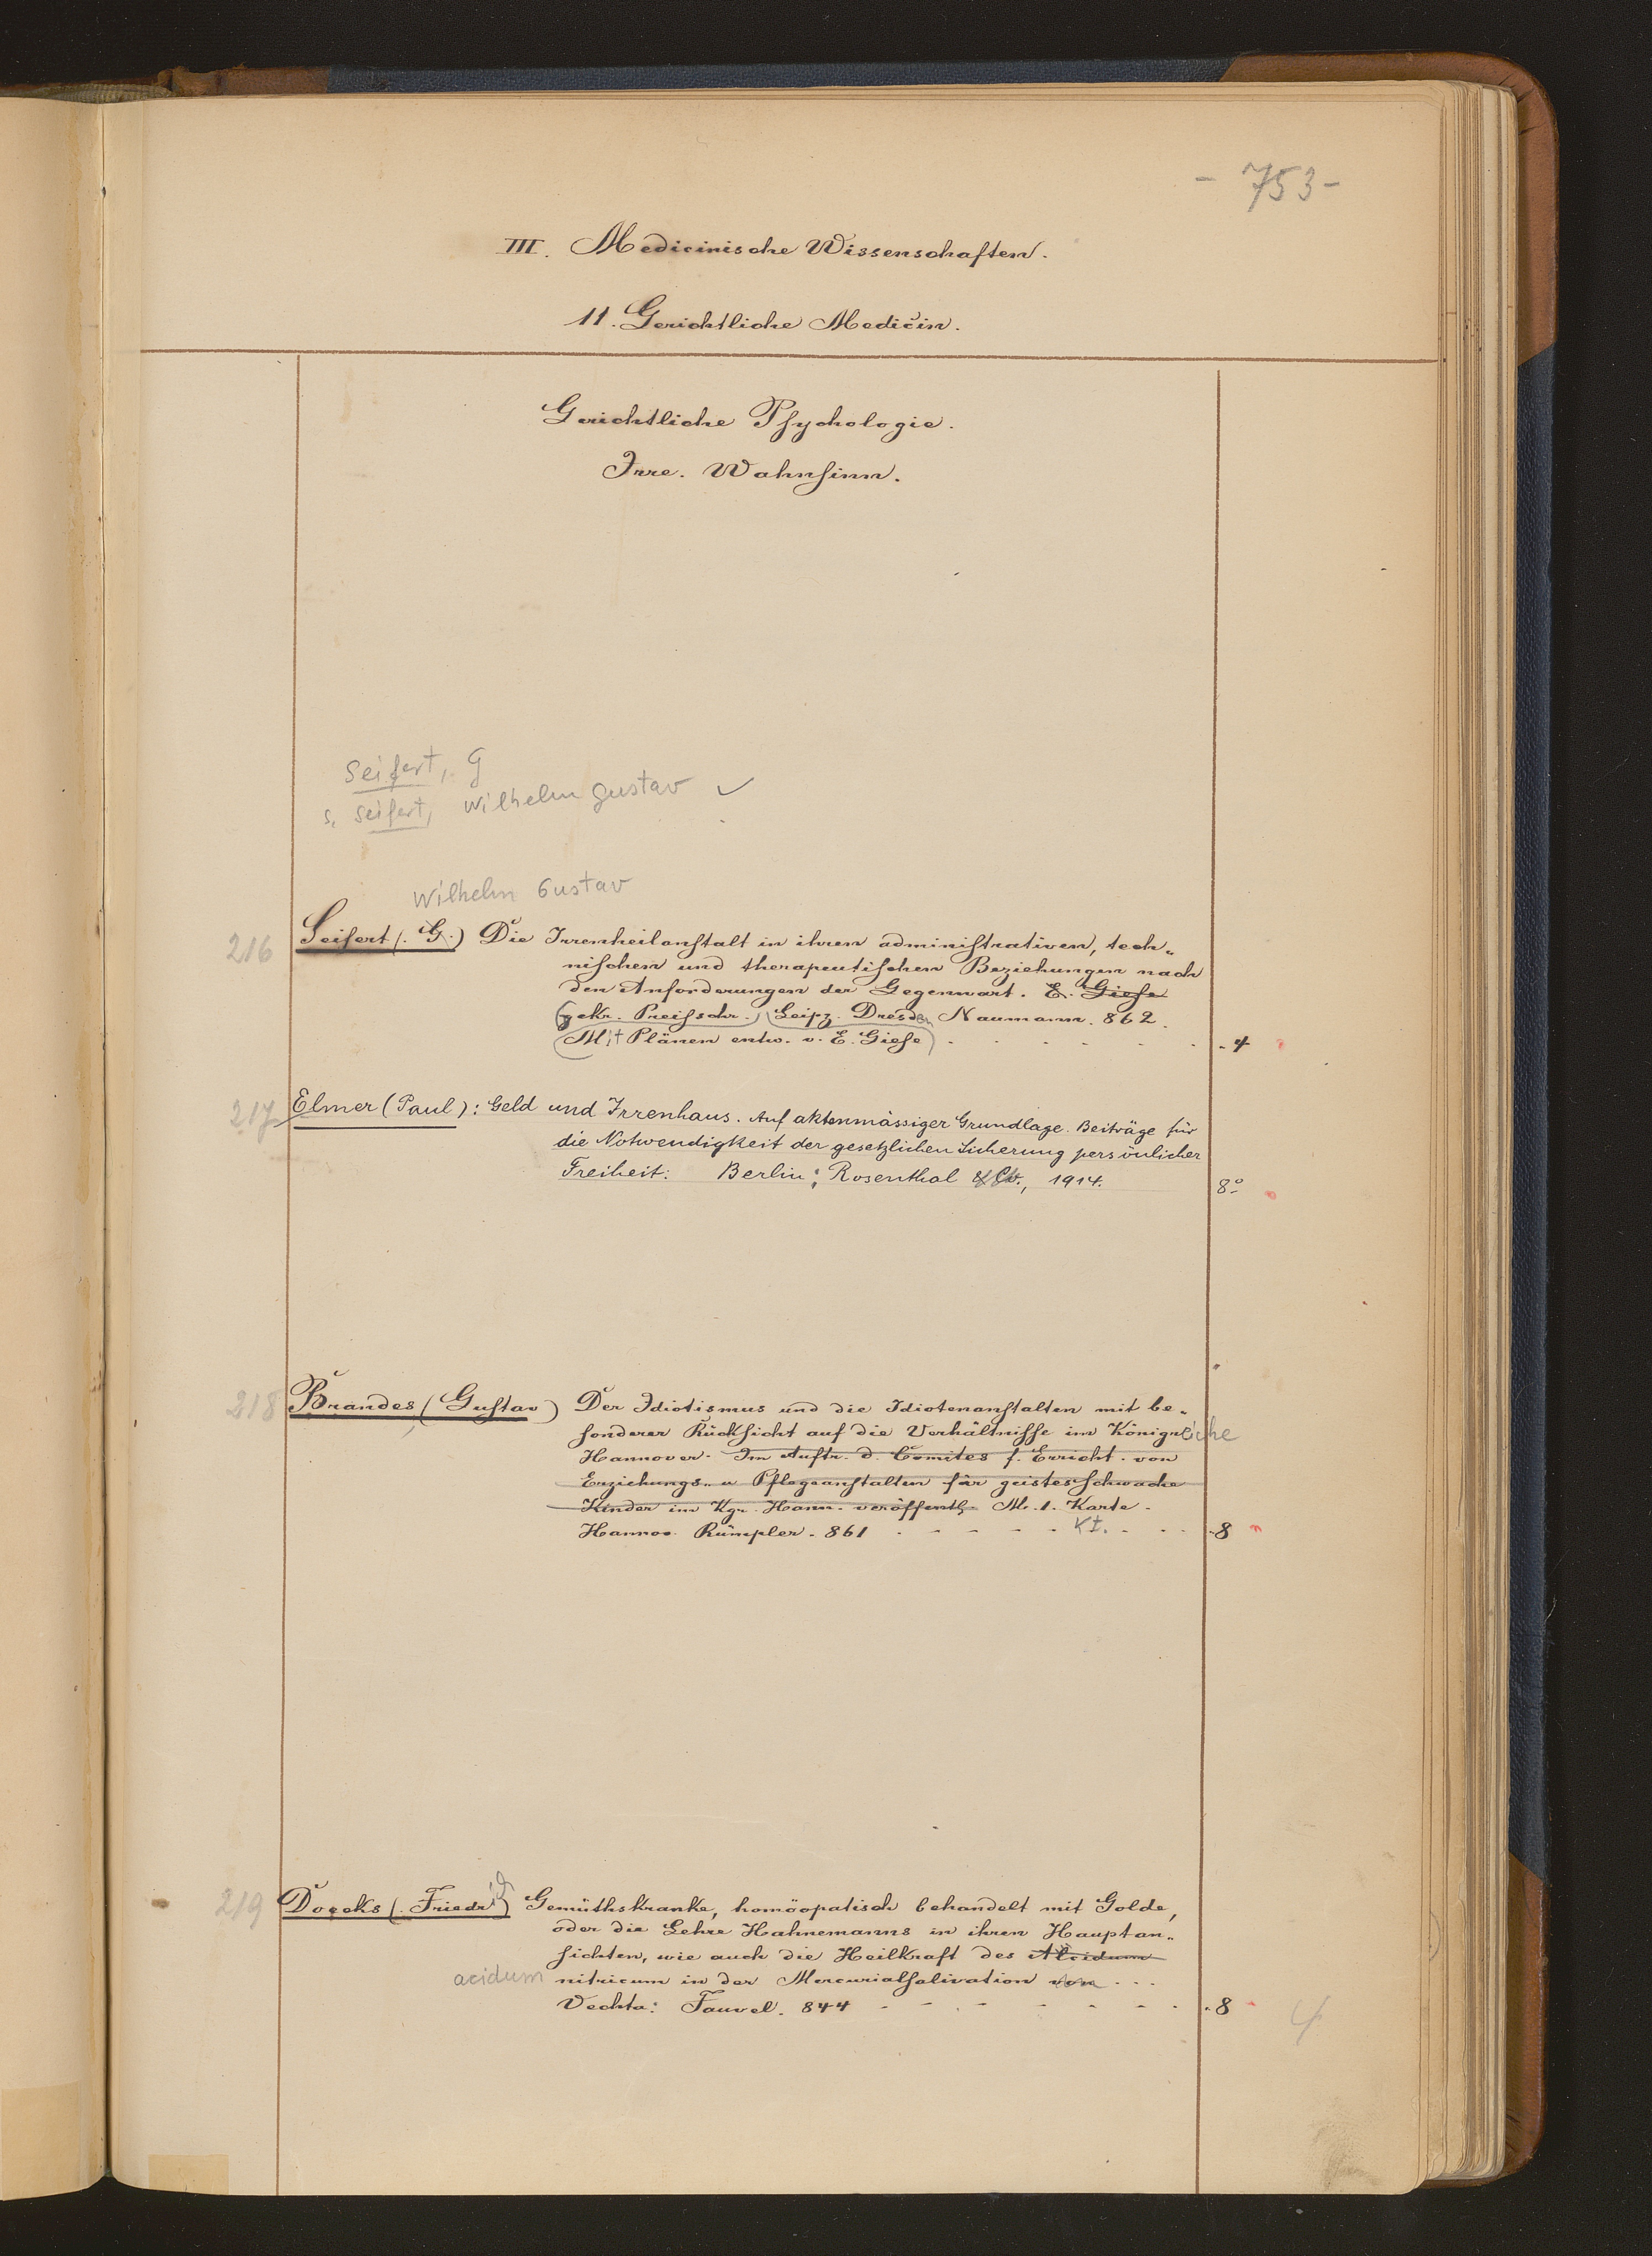 - 753 -
III. Medicinische Wissenschaften.
11. Gerichtliche Medicin.
Gerichtliche Psychologie.
Irre. Wahnsinn.
Seifert, G
s. Seifert, Wilhelm Gustav ✓
Wilhelm Gustav
216 Seifert (. G.) Die Irrenheilanstalt in ihren administrativen, tech-
nischen und therapeutischen Beziehungen nach
den Anforderungen der Gegenwart. E. Giese
(gekr. Preisschr.) (Leipz. Dresden Naumann. 862.
(Mit Plänen entw. v. E. Giese) . 4
217 Elmer (Paul): Geld und Irrenhaus. Auf aktenmässiger Grundlage. Beiträge für
die Notwendigkeit der gesetzlichen Sicherung persönlicher
Freiheit: Berlin: Rosenthal & Co., 1914. 8°
218 Brandes (Gustav) Der Idiotismus und die Idiotenanstalten mit be-
sonderer Rücksicht auf die Verhältnisse im Königreiche
Hannover. Im Auftr. d. Comites f. Erricht. von
Erziehungs- u Pflegeanstalten für geistesschwache
Kinder im Kgr. Hann. veröffentl. M. 1. Karte.
Hannov. Rümpler. 861 Kt. . 8
219 Doecks (. Friedrich) Gemüthskranke, homöopatisch behandelt mit Golde,
oder die Lehre Hahnemanns in ihren Hauptan-
sichten, wie auch die Heilkraft des Alcidum
acidum nitricum in der Mercurialsalivation von ...
Vechta: Fauvel. 844 . 8 4